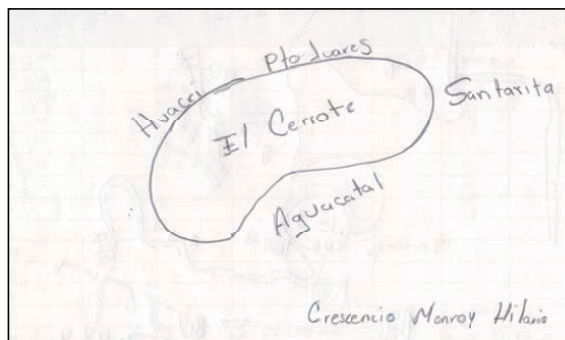 Pto Juares
Huacal
Santarita
El Cerrote
Aguacatal
Crescencio Monroy Hilario